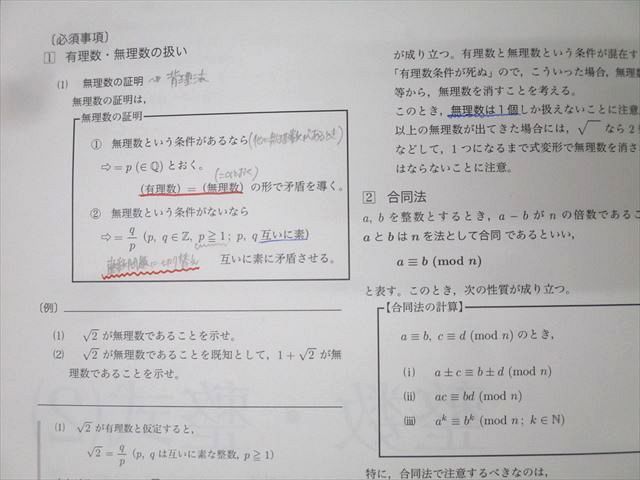 〔必須事項〕
1 有理数・無理数の扱い
(1) 無理数の証明 → 背理法
無理数の証明は,
無理数の証明
① 無理数という条件があるなら
⇨ = p (∈ ℚ) とおく。
(有理数) = (無理数) の形で矛盾を導く。
② 無理数という条件がないなら
⇨ = q/p (p, q ∈ ℤ, p ≧ 1 ; p, q 互いに素)
互いに素に矛盾させる。
〔例〕
(1) √2 が無理数であることを示せ。
(2) √2 が無理数であることを既知として, 1 + √2 が無
理数であることを示せ。
(1) √2 が有理数と仮定すると,
√2 = q/p (p, q は互いに素な整数, p ≧ 1)
が成り立つ。有理数と無理数という条件が混在す
「有理数条件が死ぬ」ので, こういった場合, 無理数
等から, 無理数を消すことを考える。
このとき, 無理数は 1 個しか扱えないことに注意
以上の無理数が出てきた場合には, √ なら 2
などして, 1 つになるまで式変形で無理数を消さ
はならないことに注意。
2 合同法
a, b を整数とするとき, a − b が n の倍数であるこ
a と b は n を法として合同 であるといい,
a ≡ b (mod n)
と表す。このとき, 次の性質が成り立つ。
【合同法の計算】
a ≡ b, c ≡ d (mod n) のとき,
(i) a ± c ≡ b ± d (mod n)
(ii) ac ≡ bd (mod n)
(iii) a^k ≡ b^k (mod n ; k ∈ ℕ)
特に, 合同法で注意するべきなのは,